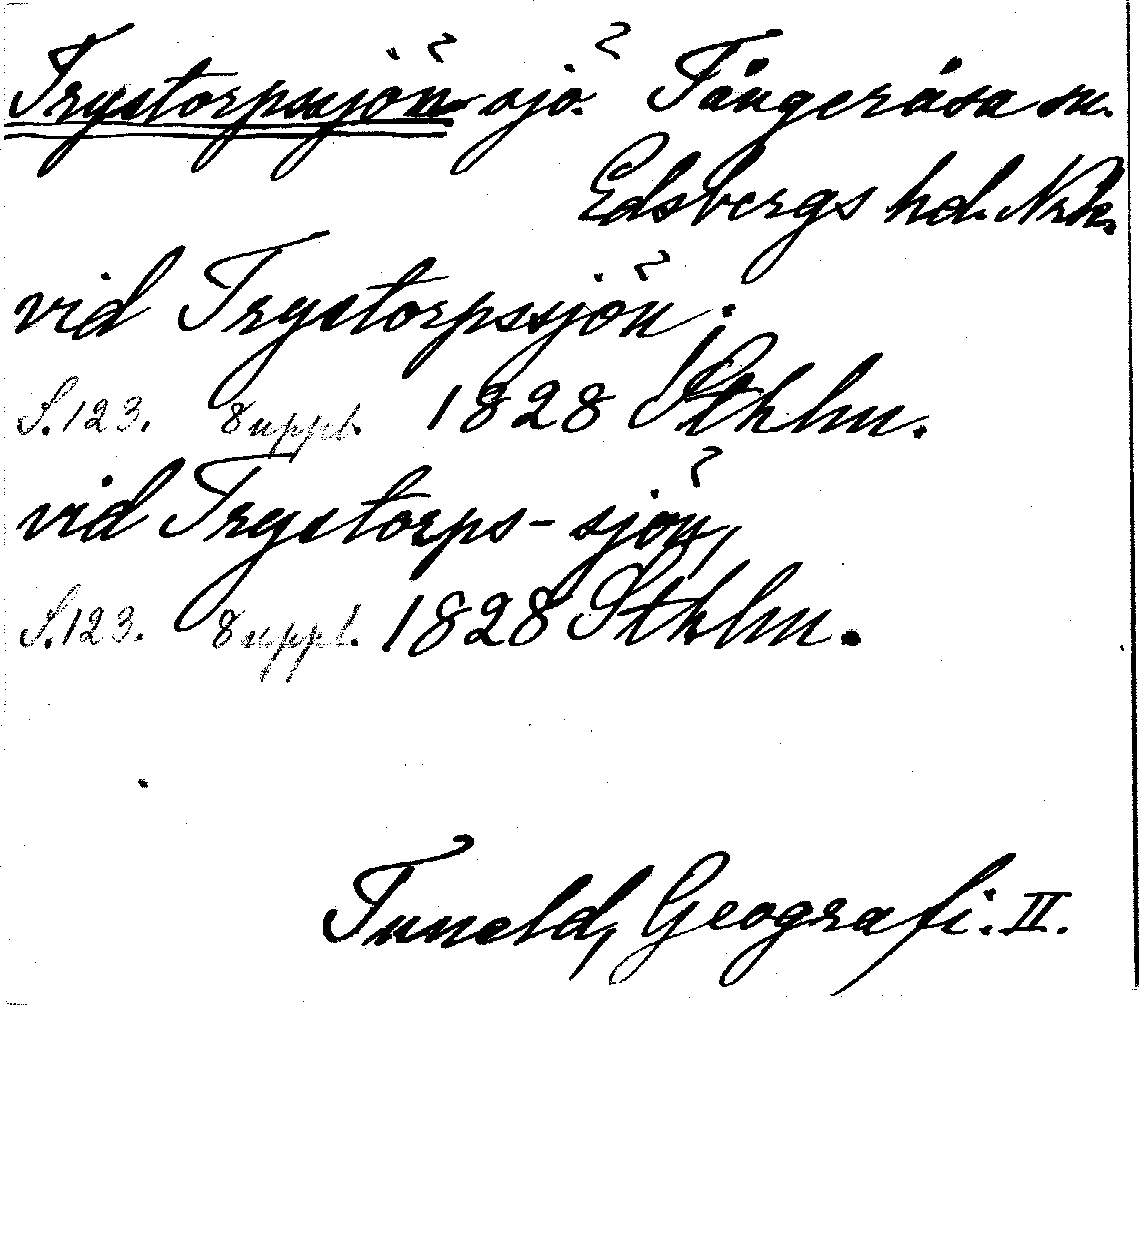 Trystorpssjön sjö. Tångeråsa sn.
Edsbergs hd. Nrk.
vid Trystorpssjön;
S. 123. 8 uppl. 1828 Sthlm.
vid Trystorps-sjön,
S. 123. 8 uppl. 1828 Sthlm.
Tuneld, Geografi. II.